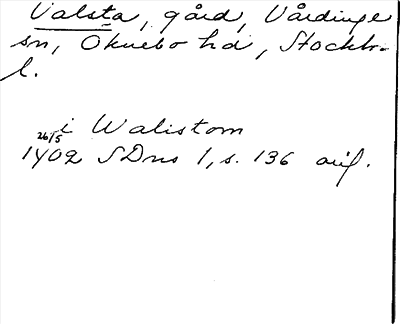 Valsta, gård, Vårdinge
sn, Öknebo hd, Stockh.
l.
i Walistom
26/5
1402 SDns 1, s. 136 avs.